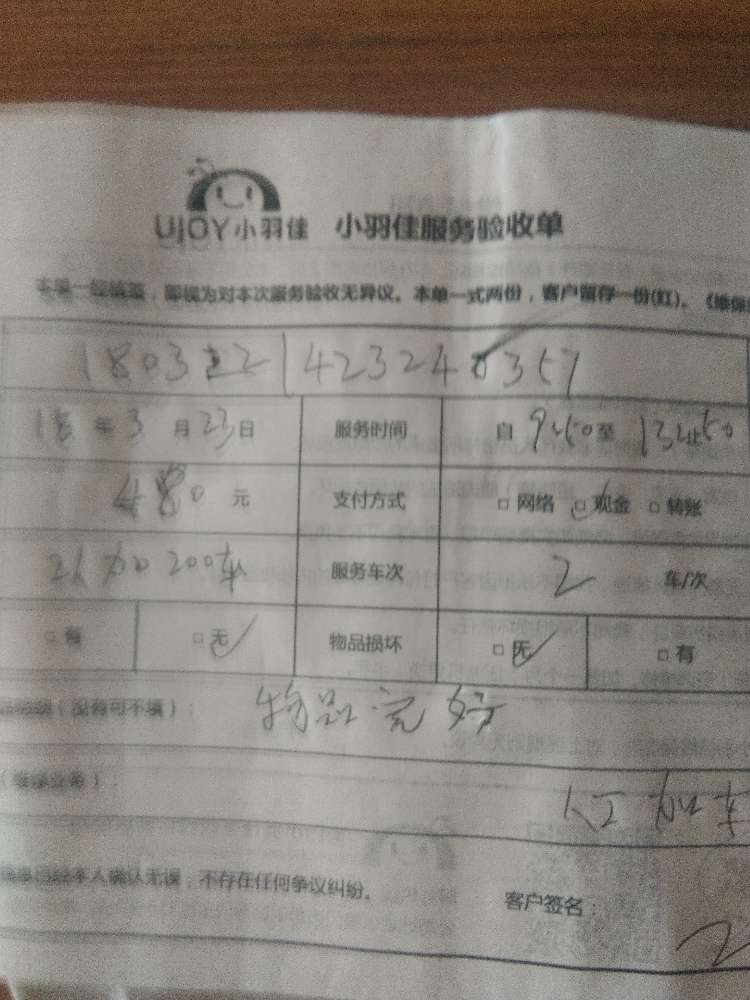 UJOY小羽佳 小羽佳服务验收单
本单一经签署，即视为对本次服务验收无异议。本单一式两份，客户留存一份(红)。
18年3月23日 服务时间 自9:50至13:50止
480元 支付方式 □网络 □现金 □转账
200车 服务车次 2 车/次
□有 □无 物品损坏 □无 □有
（没有可不填）： 物品完好
人工加车
本人确认无误，不存在任何争议纠纷。 客户签名：